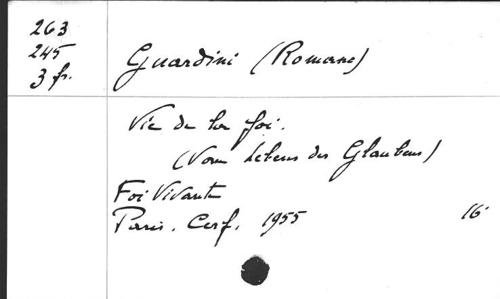 263
245
3 fr.
Guardini (Romano)
Vie de la foi.
(Vom Lebens des Glaubens)
Foi Vivante
Paris. Cerf. 1955 16